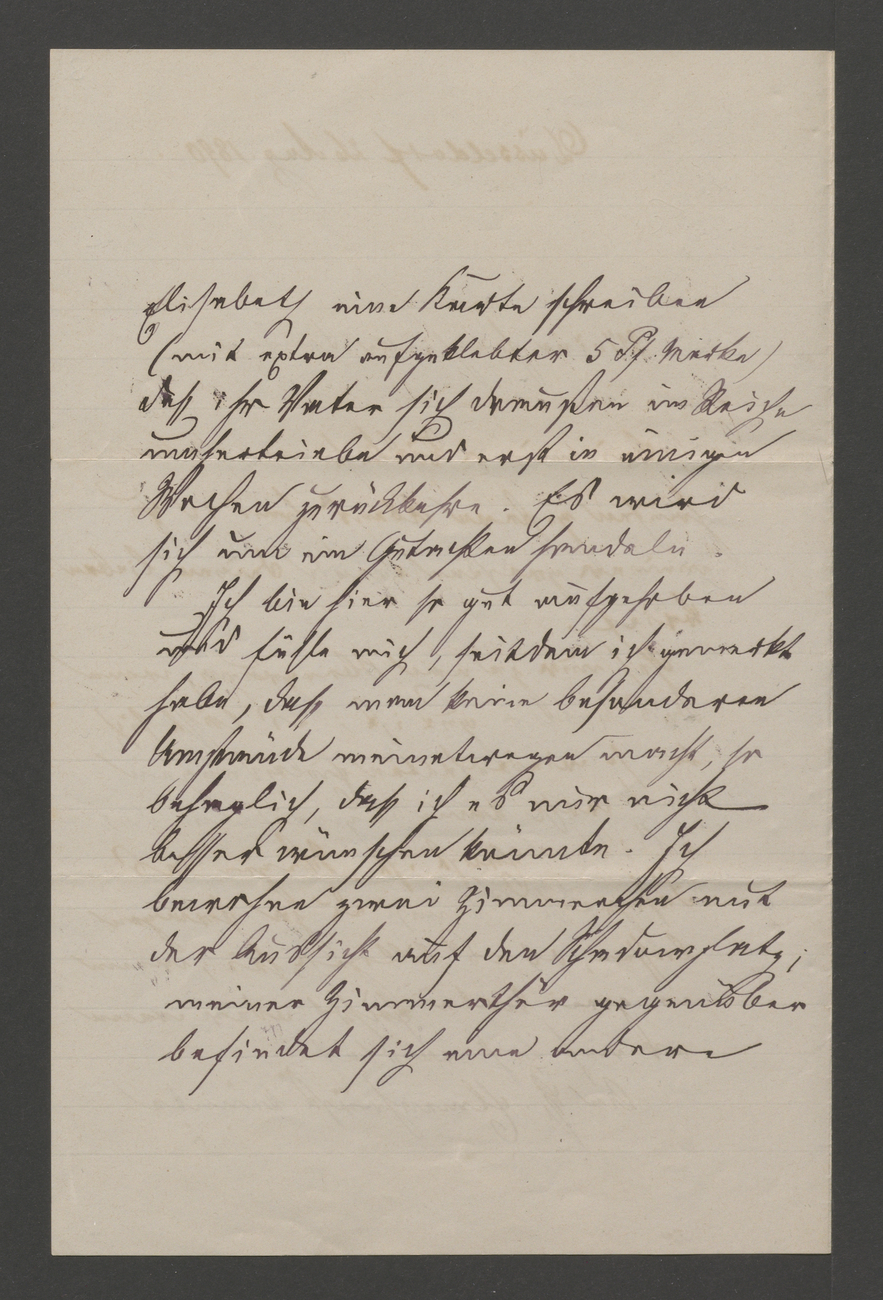 Elisabeth eine Karte schreiben
(mit extra aufgeklebter 5 Pf Marke)
daß ihr Vater sich draußen im Reiche
umhertreibe und erst in einigen
Wochen zurückkehre. Es wird
sich um ein Gutachten handeln.
Ich bin hier so gut aufgehoben
und fühle mich, seitdem ich gemerkt
habe, daß man keine besonderen
Umstände meinetwegen macht, so
behaglich, daß ich es mir nicht
besser wünschen könnte. Ich
bewohne zwei Zimmerchen mit
der Aussicht auf den Schadowplatz;
meiner Zimmerthür gegenüber
befindet sich eine andere